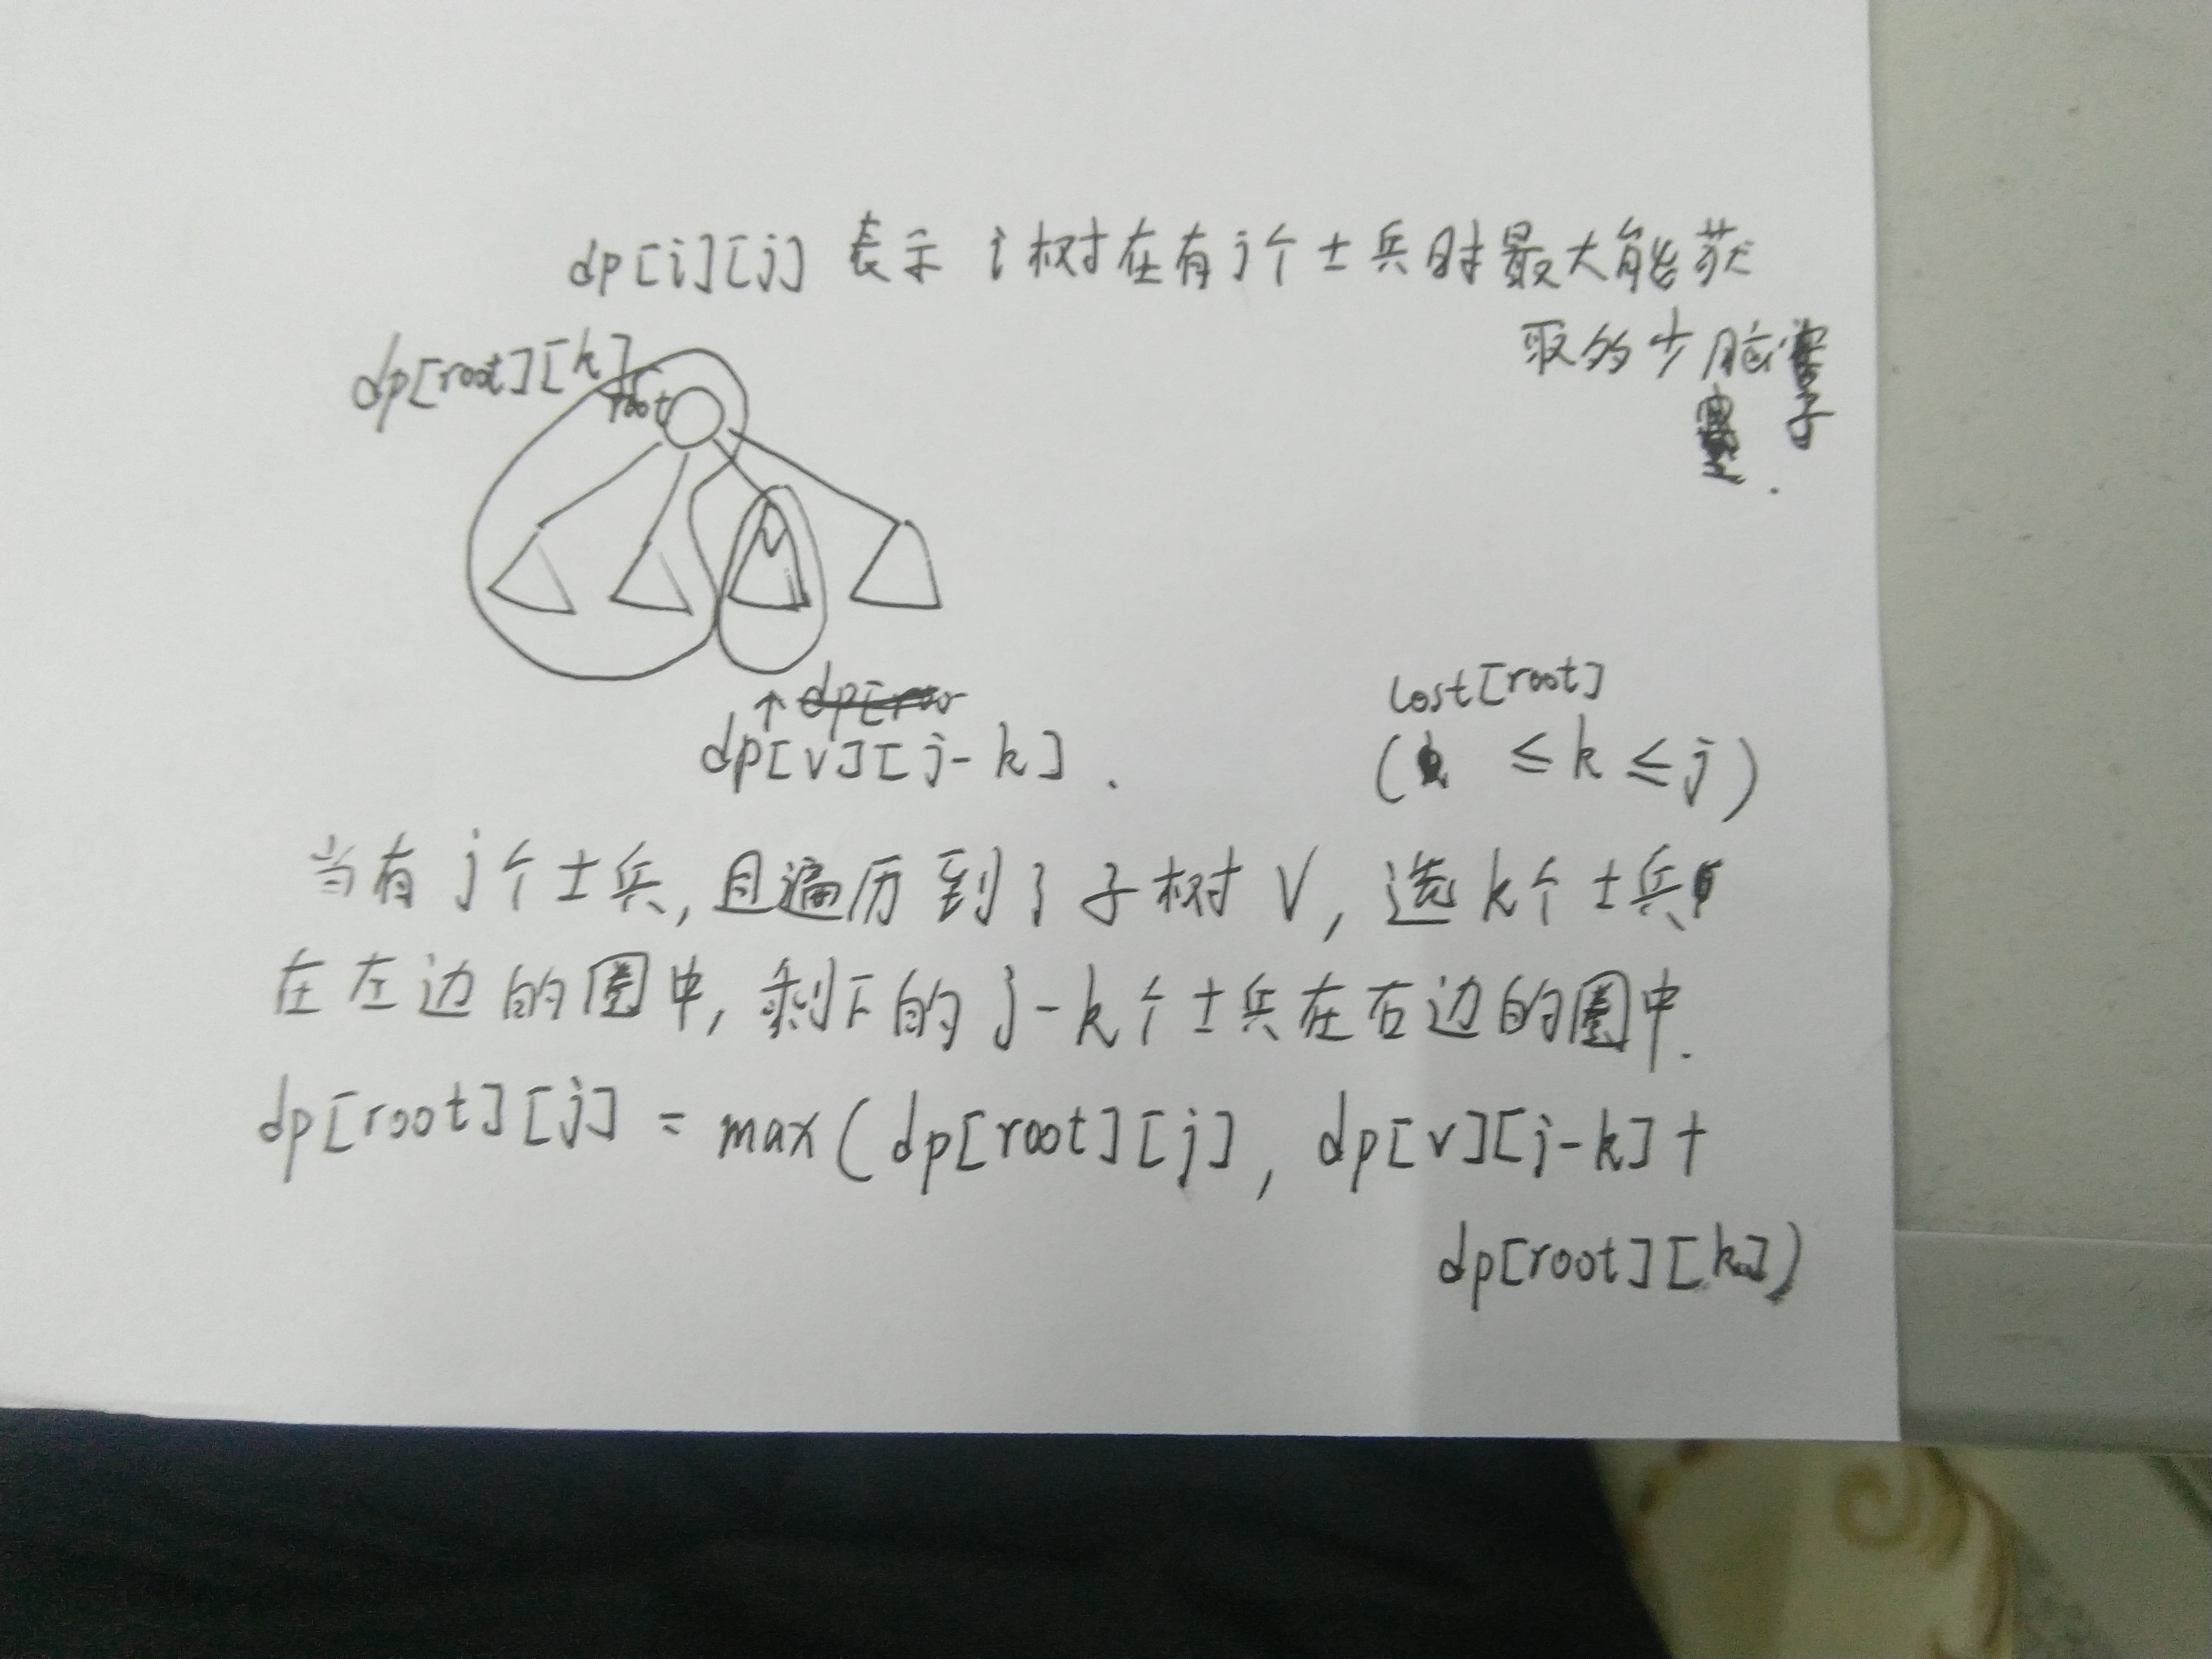 dp[i][j] 表示 i树在有j个士兵时最大能获
取的少脑
dp[root][k]
root
V
dp[v][j-k].
cost[root]
( ≤ k ≤ j)
当有j个士兵,且遍历到了子树V,选k个士兵
在左边的圈中,剩下的j-k个士兵在右边的圈中.
dp[root][j] = max(dp[root][j], dp[v][j-k]+
dp[root][k])